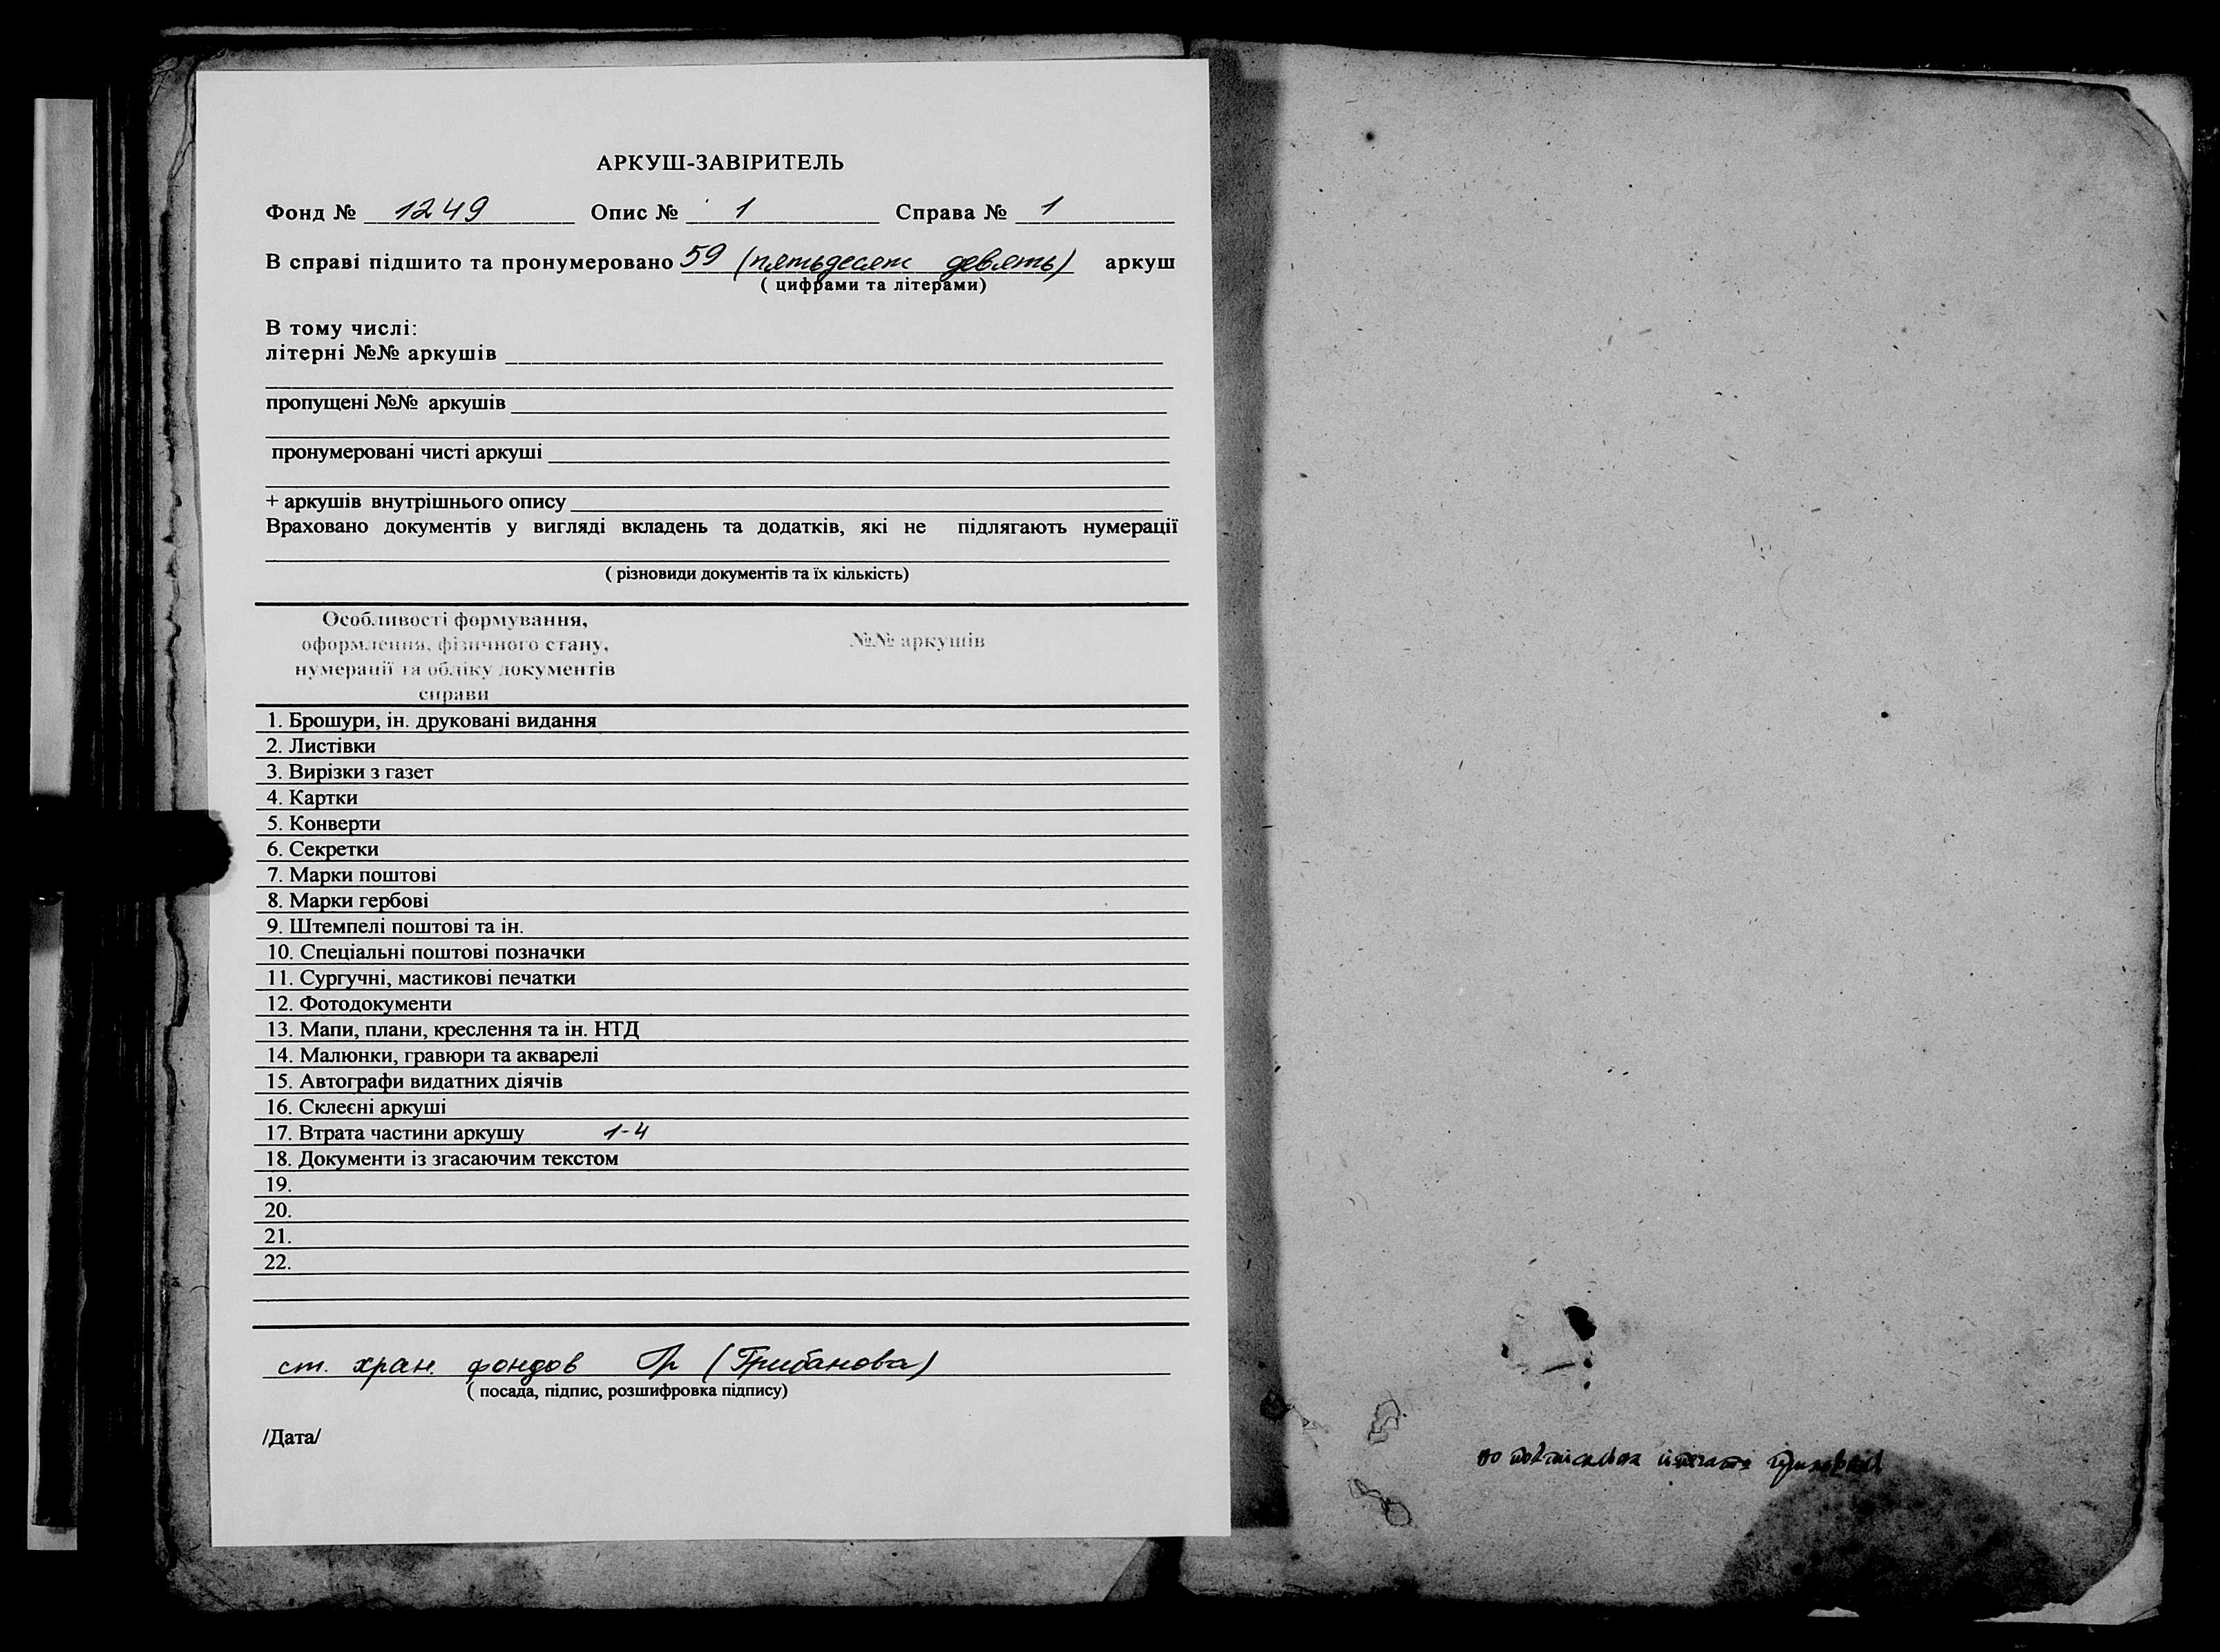 АРКУШ-ЗАВІРИТЕЛЬ
Фонд № 1249 Опис № 1 Справа № 1
В справі підшито та пронумеровано 59 (пятьдесят девять) аркуш
( цифрами та літерами)
В тому числі:
літерні №№ аркушів
пропущені №№ аркушів
пронумеровані чисті аркуші
+ аркушів внутрішнього опису
Враховано документів у вигляді вкладень та додатків, які не підлягають нумерації
( різновиди документів та їх кількість)
Особливості формування,
оформлення, фізичного стану,
нумерації та обліку документів
справи
№№ аркушів
1. Брошури, ін. друковані видання
2. Листівки
3. Вирізки з газет
4. Картки
5. Конверти
6. Секретки
7. Марки поштові
8. Марки гербові
9. Штемпелі поштові та ін.
10. Спеціальні поштові позначки
11. Сургучні, мастикові печатки
12. Фотодокументи
13. Мапи, плани, креслення та ін. НТД
14. Малюнки, гравюри та акварелі
15. Автографи видатних діячів
16. Склеєні аркуші
17. Втрата частини аркушу 1-4
18. Документи із згасаючим текстом
19.
20.
21.
22.
ст. хран. фондов (Грибанова)
( посада, підпис, розшифровка підпису)
/Дата/